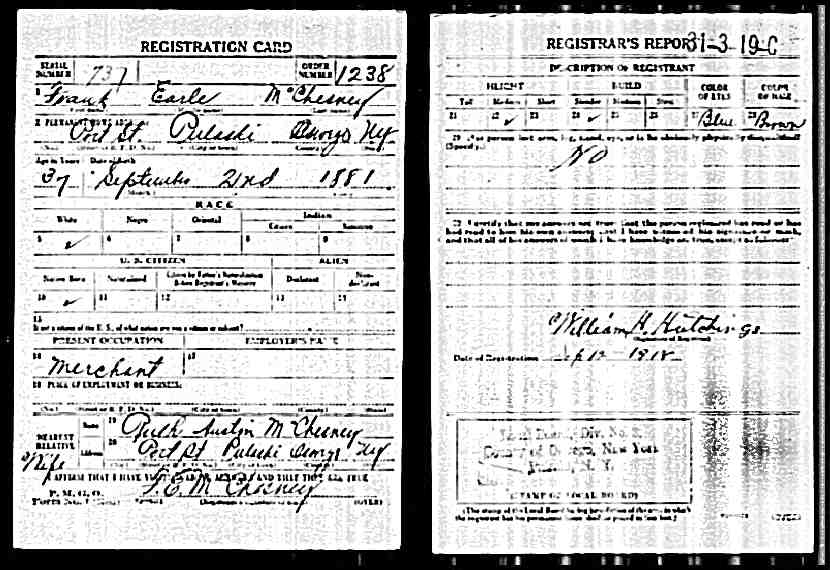 REGISTRATION CARD
SERIAL NUMBER 737 ORDER NUMBER 1238
1 Frank Earle McChesney
2 PERMANENT HOME ADDRESS
Port St. Pulaski Oswego NY
Age in Years Date of Birth
37 September 22nd 1881
RACE
White Negro Oriental Indian
Citizen
5 ✓ 6 7 8 9
U. S. CITIZEN ALIEN
Native Born Naturalized Citizen by Father's Naturalization Before Registrant's Majority Declarant Non-declarant
10 ✓ 11 12 13 14
15
If not a citizen of the U. S., of what nation are you a citizen or subject?
PRESENT OCCUPATION EMPLOYER'S NAME
16 Merchant 17
18 PLACE OF EMPLOYMENT OR BUSINESS:
(No.) (Street or R. F. D. No.) (City or town) (County) (State)
NEAREST RELATIVE Name 19 Ruth Austin McChesney
Wife Address 20 Port St Pulaski Oswego NY
I AFFIRM THAT I HAVE AND THAT THEY ARE TRUE
F. E. McChesney
REGISTRAR'S REPORT 31-3-19-C
DESCRIPTION OF REGISTRANT
HEIGHT BUILD COLOR OF EYES COLOR OF HAIR
Tall Medium Short Slender Medium Stout
21 22 ✓ 23 24 ✓ 25 26 27 Blue 28 Brown
29 Has person lost arm, leg, hand, eye, or is he obviously physically disqualified?
(Specify.)
No
30 I certify that my answers are true; that the person registered has read or has
had read to him his own answers; that I have witnessed his signature or mark,
and that all of his answers of which I have knowledge are true, except as follows:
William H. Hutchings
(Signature of Registrar)
Date of Registration Sep 12 1918
Local Board, Div. No.
County of Oswego, New York
N. Y.
(STAMP OF LOCAL BOARD)
(The stamp of the Local Board having jurisdiction of the area in which
the registrant has his permanent home shall be placed in this box.)